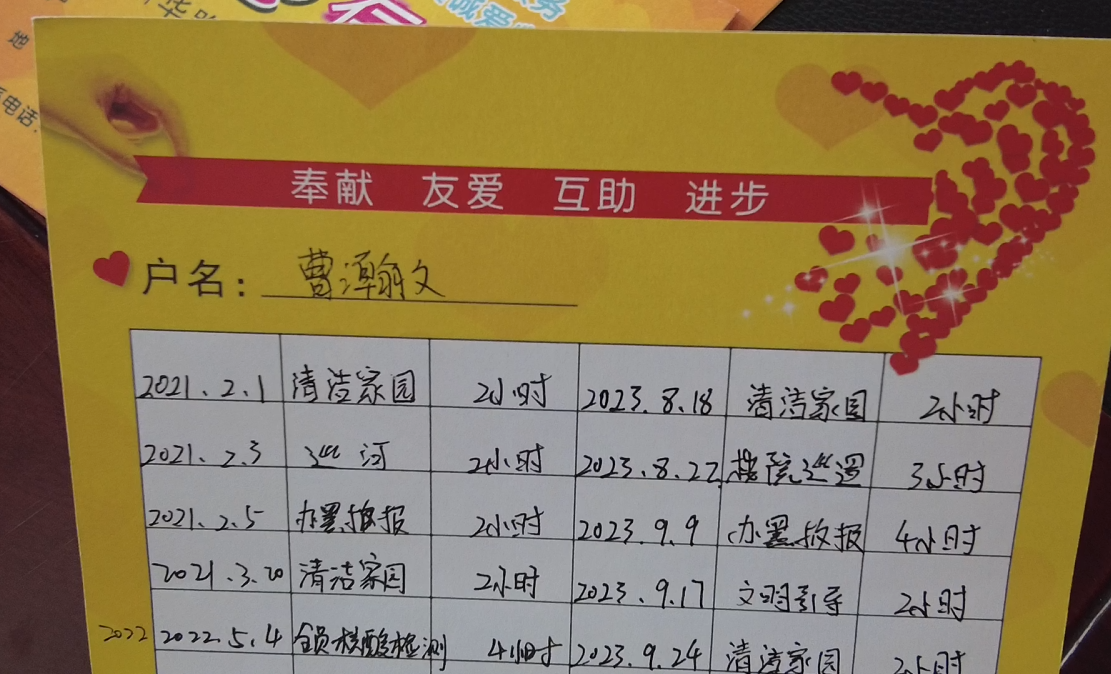 地
电话:
奉献 友爱 互助 进步
户名: 曹潭翰文
2021.2.1 清洁家园 2小时 2023.8.18 清洁家园 2小时
2021.2.3 巡河 2小时 2023.8.22 楼院巡逻 3小时
2021.2.5 办黑板报 2小时 2023.9.9 办黑板报 4小时
2021.3.20 清洁家园 2小时 2023.9.17 文明引导 2小时
2022 2022.5.4 全员核酸检测 4小时 2023.9.24 清洁家园 2小时